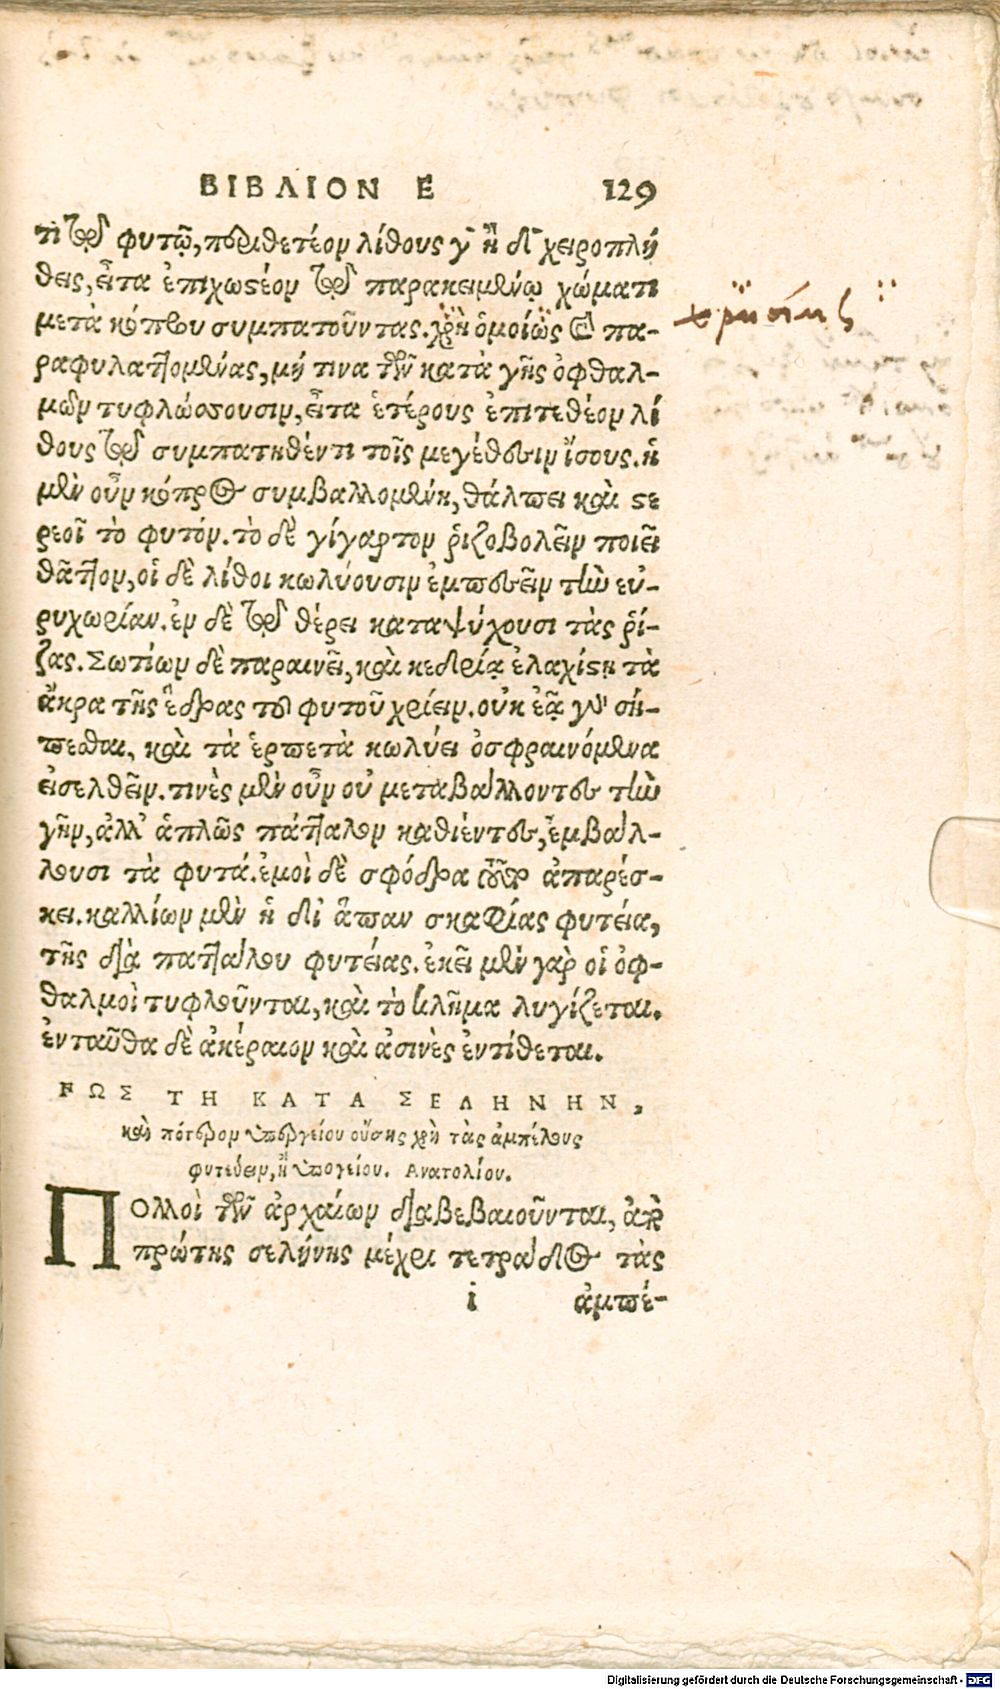 ΒΙΒΛΙΟΝ Ε 129
τι τῷ φυτῷ, περιθετέον λίθους γ´ ἢ δ´ χειροπλη
θεῖς, εἶτα ἐπιχωστέον τῷ παρακειμένῳ χώματι
μετὰ κόπρου συμπατοῦντας. χρὴ ὁμοίως καὶ πα-
ραφυλαττομένας, μή τινα τῶν κατὰ γῆς ὀφθαλ-
μῶν τυφλώσουσιν, εἶτα ἑτέρους ἐπιτεθέον λί
θους τῷ συμπατηθέντι τοῖς μεγέθεσιν ἴσους. ἡ
μὲν οὖν κόπρος συμβαλλομένη, θάλπει καὶ στε
ρεοῖ τὸ φυτόν. τὸ δὲ γίγαρτον ῥιζοβολεῖν ποιεῖ
θᾶττον, οἱ δὲ λίθοι κωλύουσιν ἐμπεσεῖν τὴν εὐ-
ρυχωρίαν. ἐν δὲ τῷ θέρει καταψύχουσι τὰς ῥί-
ζας. Σωτίων δὲ παραινεῖ, καὶ κεδρίᾳ ἐλαχίστῃ τὰ
ἄκρα τῆς ἕδρας τοῦ φυτοῦ χρίειν. οὐκ ἐᾷ γὰρ σή-
πεσθαι, καὶ τὰ ἑρπετὰ κωλύει ὀσφραινόμενα
εἰσελθεῖν. τινὲς μὲν οὖν οὐ μεταβάλλοντες τὴν
γῆν, ἀλλ' ἁπλῶς πάτταλον καθιέντες, ἐμβάλ-
λουσι τὰ φυτά. ἐμοὶ δὲ σφόδρα τοῦτο ἀπαρέσ-
κει. καλλίων μὲν ἡ δι' ἅπαν σκαφίας φυτεία,
τῆς διὰ παττάλου φυτείας. ἐκεῖ μὲν γὰρ οἱ ὀφ-
θαλμοὶ τυφλοῦνται, καὶ τὸ κλῆμα λυγίζεται.
ἐνταῦθα δὲ ἀκέραιον καὶ ἀσινὲς ἐντίθεται.
ΓΩΣ ΤΗ ΚΑΤΑ ΣΕΛΗΝΗΝ,
καὶ πότερον ὑπεργείου οὔσης χρὴ τὰς ἀμπέλους
φυτεύειν, ἢ ὑπογείου. Ανατολίου.
ΠΟλλοὶ τῶν ἀρχαίων διαβεβαιοῦνται, ἀπὸ
πρώτης σελήνης μέχρι τετράδος τὰς
i ἀμπέ-
Digitalisierung gefördert durch die Deutsche Forschungsgemeinschaft - DFG